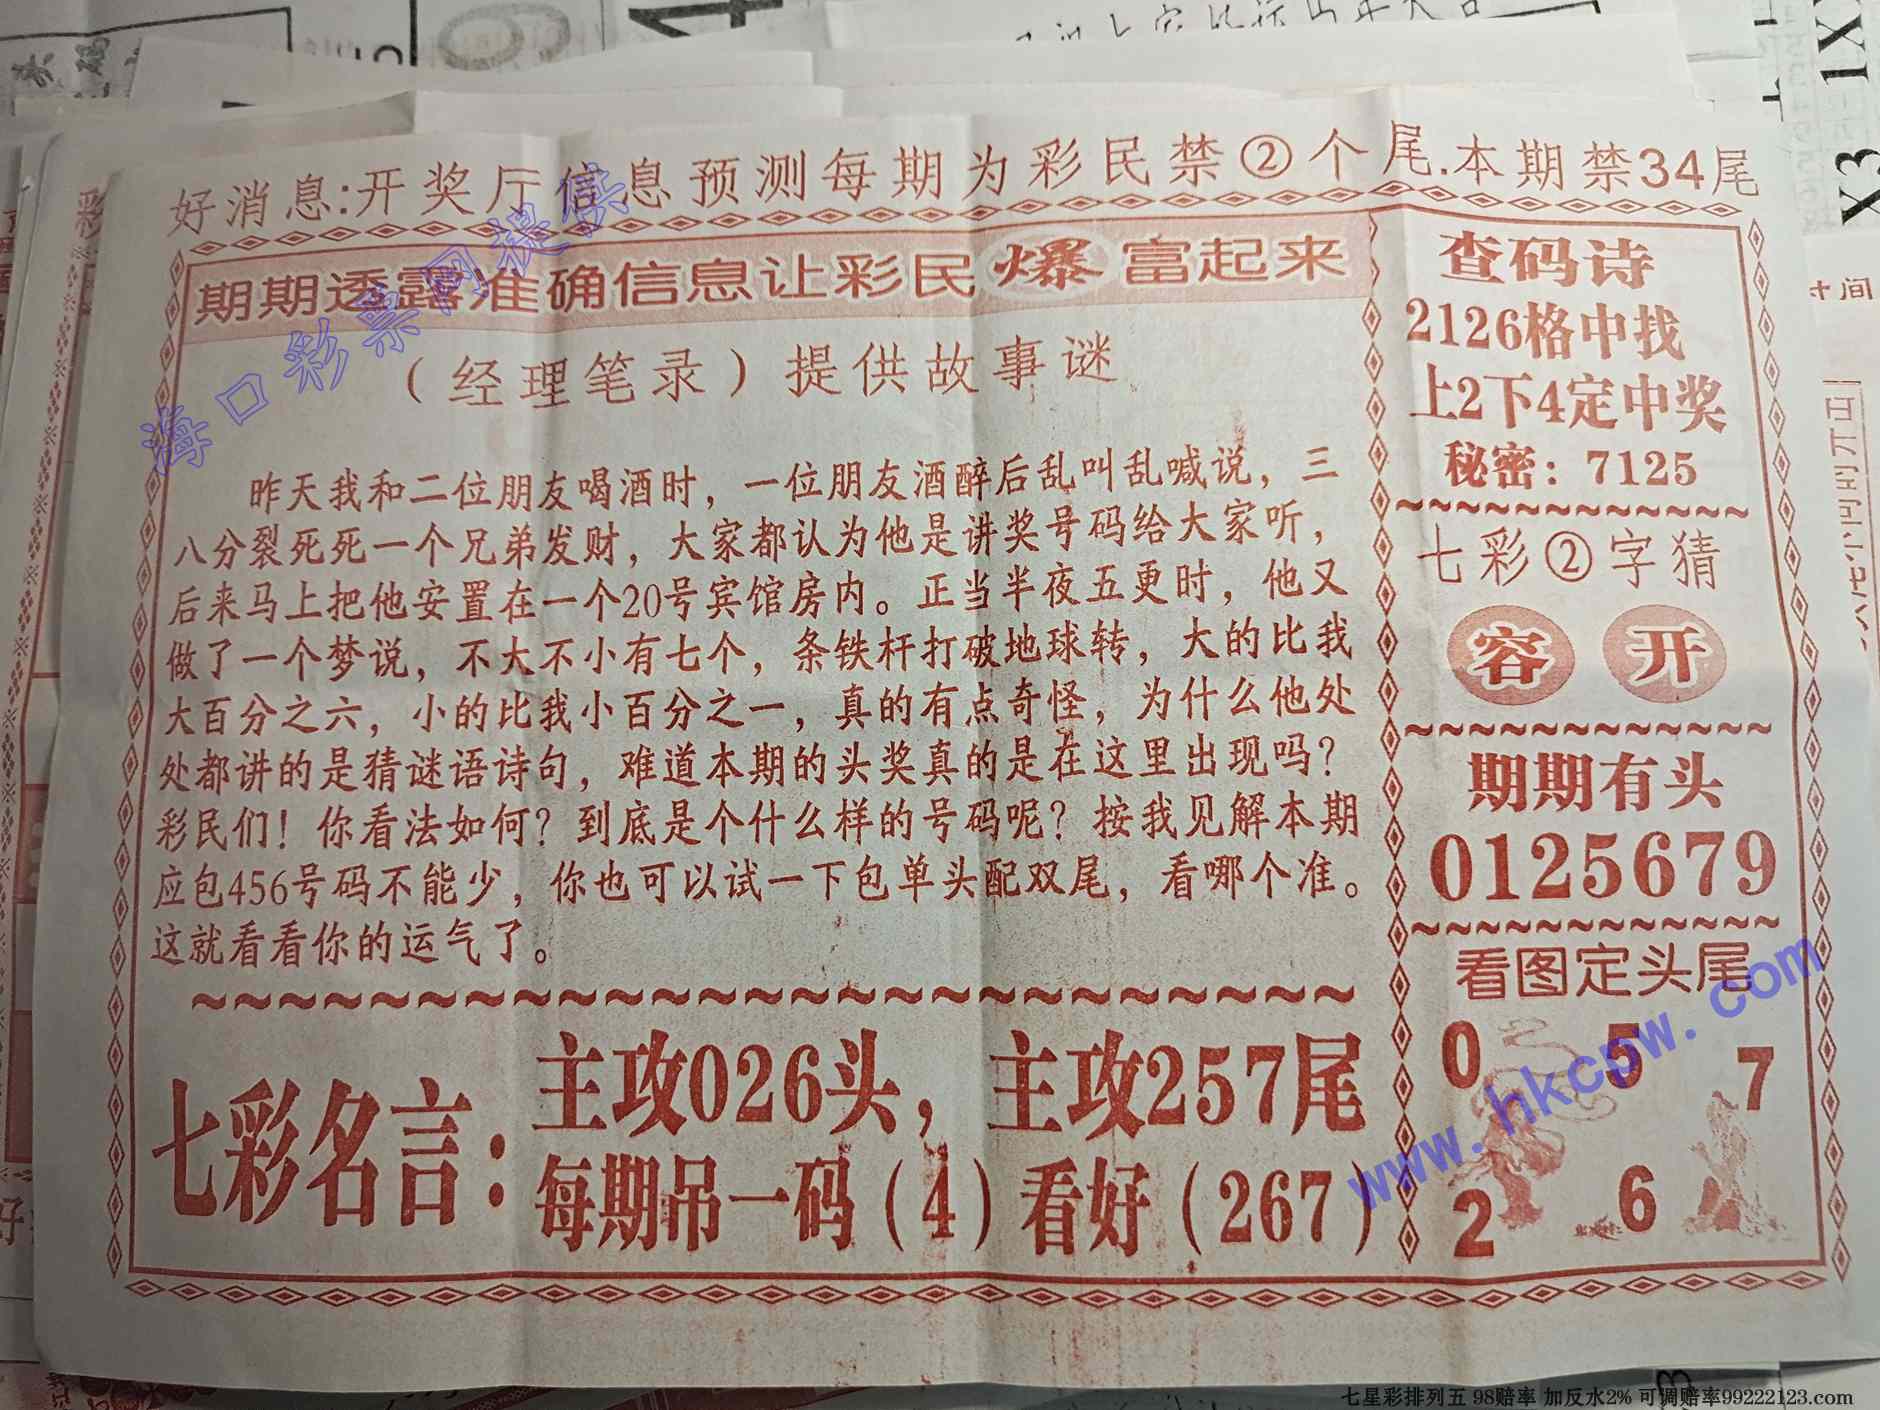 好消息:开奖厅信息预测每期为彩民禁②个尾.本期禁34尾
期期透露准确信息让彩民爆富起来
（经理笔录）提供故事谜
昨天我和二位朋友喝酒时，一位朋友酒醉后乱叫乱喊说，三
八分裂死死一个兄弟发财，大家都认为他是讲奖号码给大家听，
后来马上把他安置在一个20号宾馆房内。正当半夜五更时，他又
做了一个梦说，不大不小有七个，条铁杆打破地球转，大的比我
大百分之六，小的比我小百分之一，真的有点奇怪，为什么他处
处都讲的是猜谜语诗句，难道本期的头奖真的是在这里出现吗？
彩民们！你看法如何？到底是个什么样的号码呢？按我见解本期
应包456号码不能少，你也可以试一下包单头配双尾，看哪个准。
这就看看你的运气了。
七彩名言：
主攻026头，主攻257尾
每期吊一码（4）看好（267）
查码诗
2126格中找
上2下4定中奖
秘密：7125
七彩②字猜
容 开
期期有头
0125679
看图定头尾
0 5 7
2 6
海口彩票网提供
www.hkcpw.com
寸间
X3 1X
七星彩排列五 98赔率 加反水2% 可调赔率99222123.com